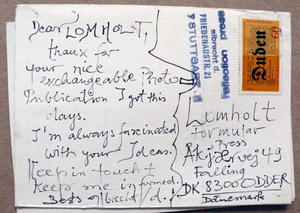 Dear LOMHOLT,
thanx for
your nice
exchangeable Photo
Publication I got this
days.
I'm always fascinated
with your Ideas.
Keep in touch &
Keep me informed.
Bests albrecht d.
reflection press
albrecht d.
FRIEDENAUSTR. 21
7 STUTTGART
Duden
60
Lomholt
formular
Press
Falling
DK 8300 ODDER
Dänemark